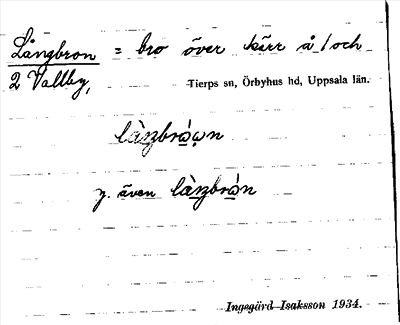 Långbron = bro över kärr å / och
2 Vallby, Tierps sn, Örbyhus hd, Uppsala län.
làŋbrȧ̀ọn
y. även làŋbrȧ̀n
Ingegärd Isaksson 1934.